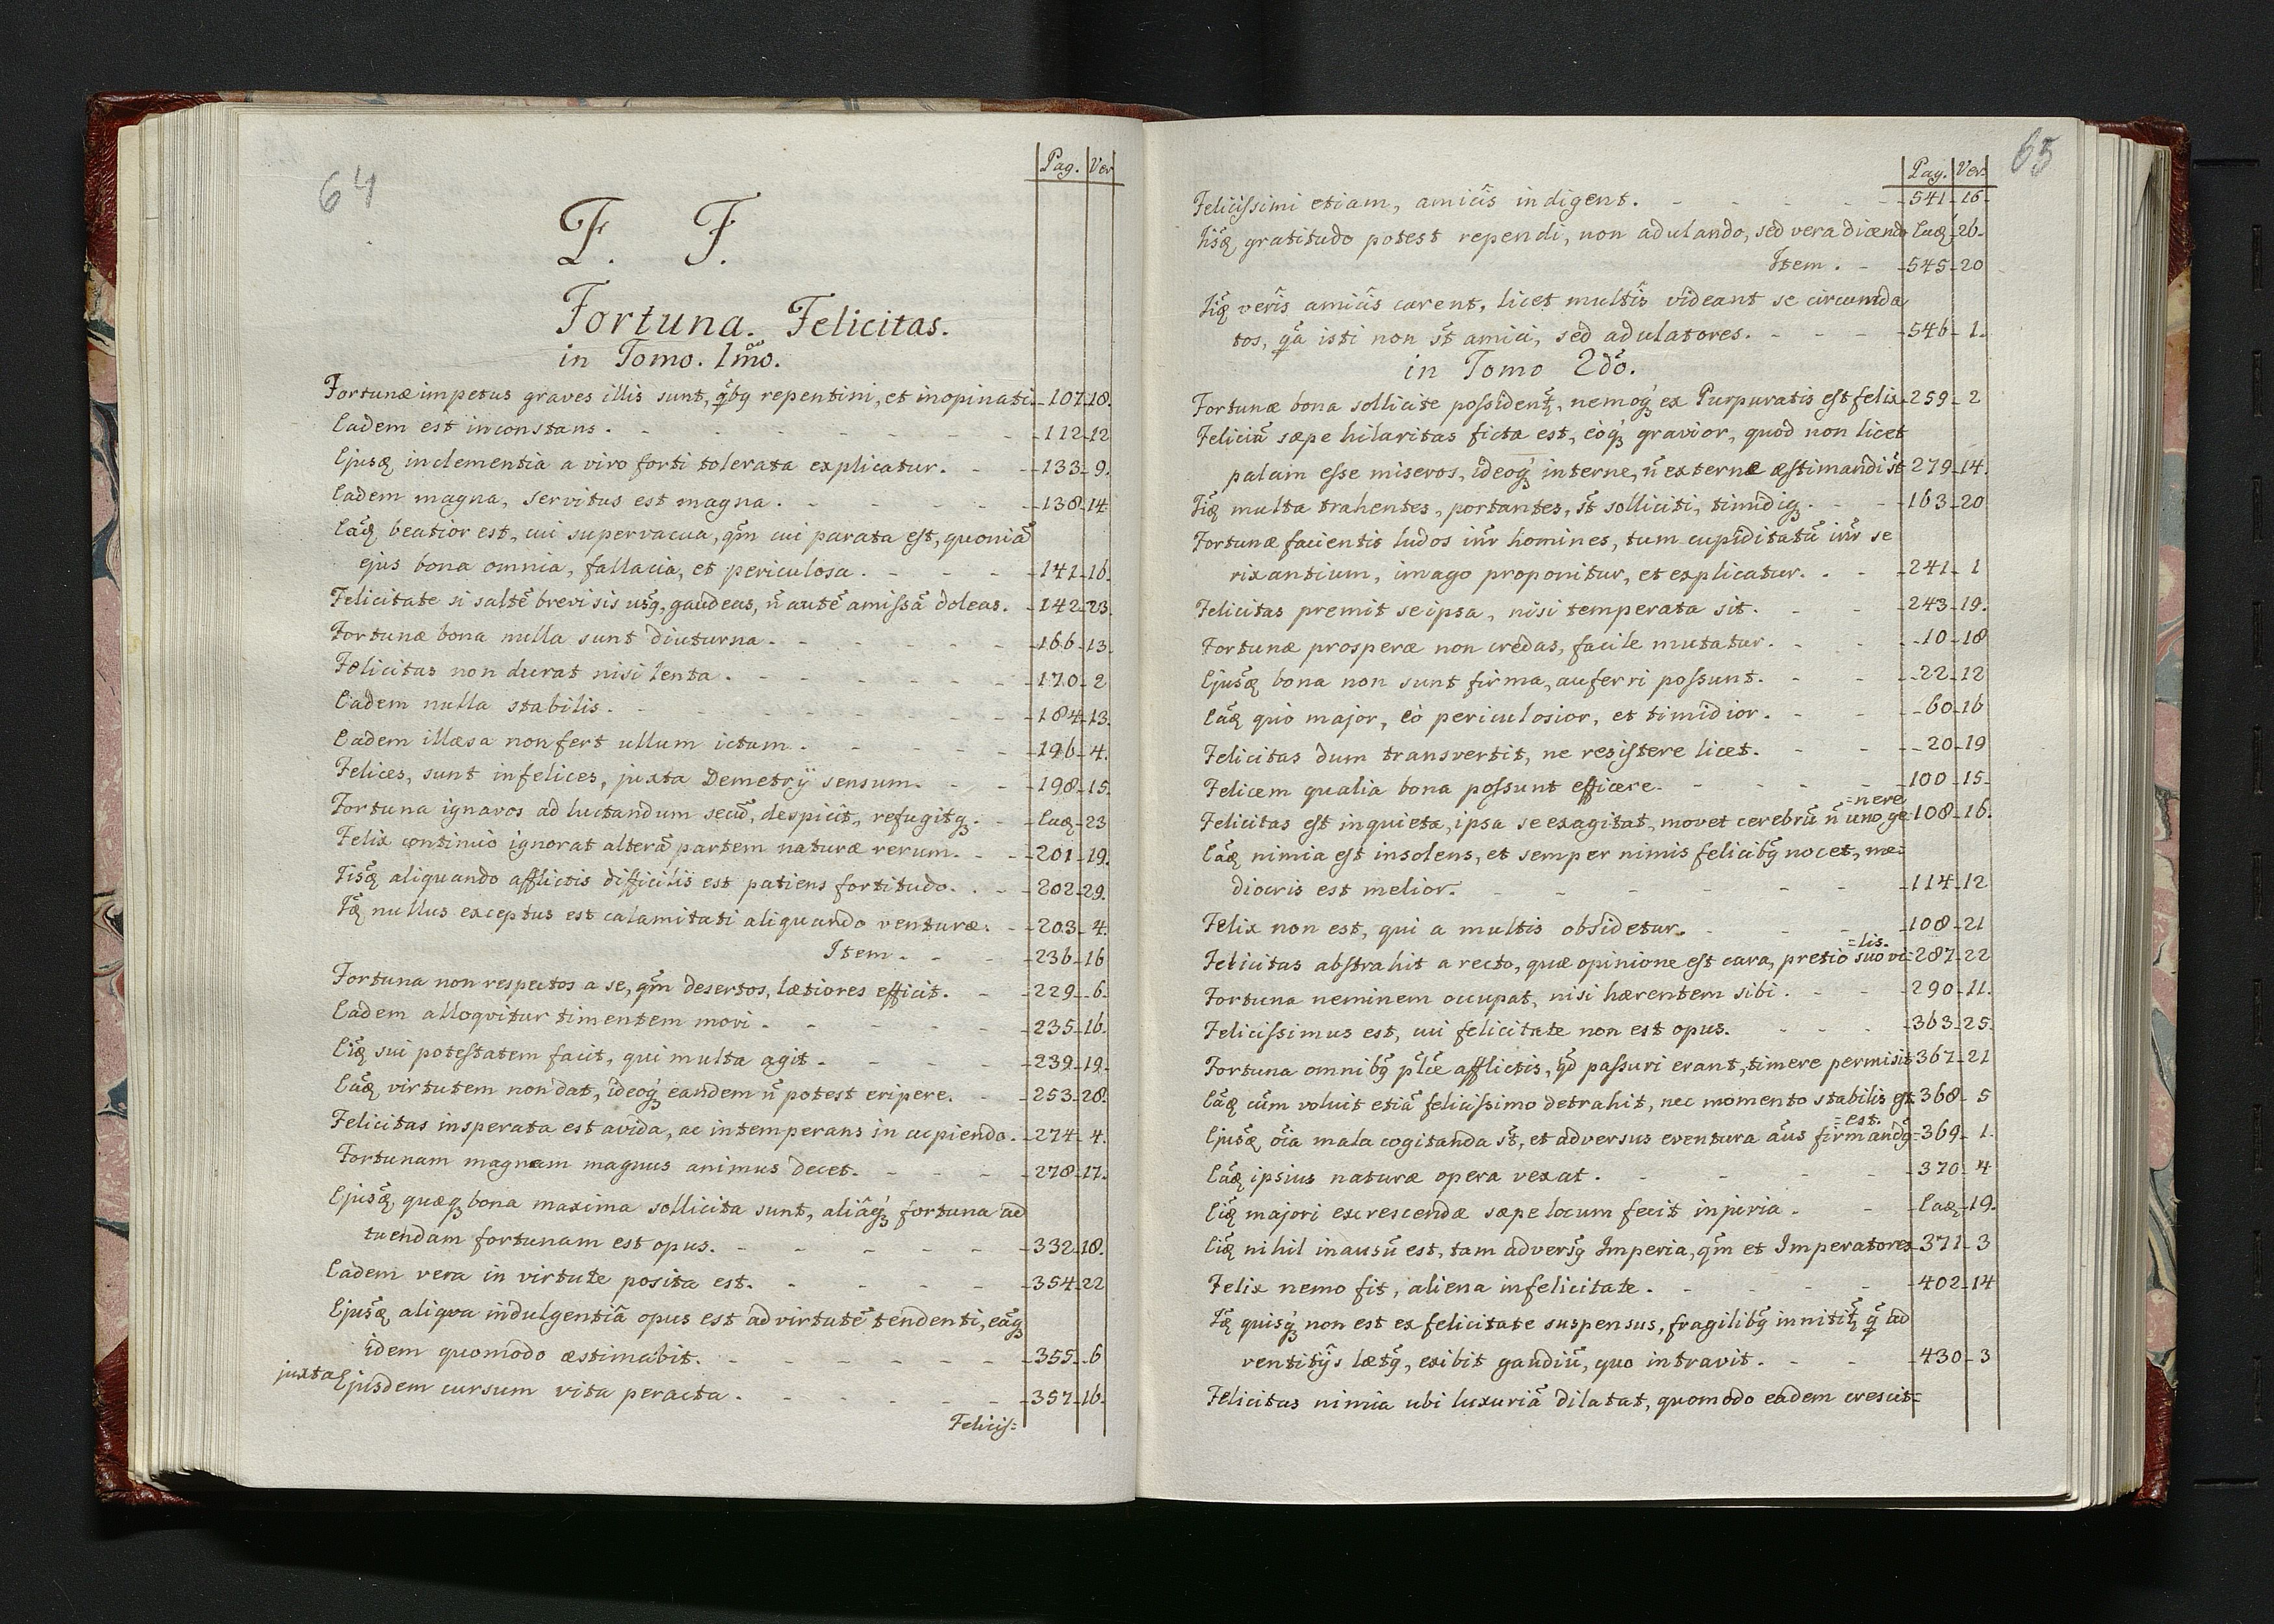 64
Pag. Ver
F. F.
Fortuna. Felicitas.
in Tomo. 1mo.
Fortunæ impetus graves illis sunt, q̃bq repentini, et inopinati. 107. 18.
Eadem est inconstans. 112. 12
Ejusq̃ inclementia a viro forti tolerata explicatur. 133. 9.
Eadem magna, servitus est magna. 138. 14
Eaq̃ beatior est, cui supervacua, qm̃ cui parata est, quoniã
ejus bona omnia, fallacia, et periculosa. 141. 16.
Felicitate si saltẽ brevi sis usq, gaudeas, ñ autẽ amissã doleas. 142. 23.
Fortunæ bona nulla sunt diuturna. 166. 13.
Felicitas non durat nisi lenta. 170. 2
Eadem nulla stabilis. 184. 13.
Eadem illæsa non fert ullum ictum. 196. 4.
Felices, sunt infelices, juxta Demetrÿ sensum. 198. 15.
Fortuna ignavos ad luctandum secũ, despicit, refugitq. Eaq 23
Felix continuo ignorat alterã partem naturæ rerum. 201. 19.
Iisq̃ aliquando afflictis difficilis est patiens fortitudo. 202. 29.
Iq̃ nullus exceptus est calamitati aliquando venturæ. 203. 4.
Item. 236. 16
Fortuna non respectos a se, qm̃ desertos, lætiores efficit. 229. 6.
Eadem alloqvitur timentem mori. 235. 16.
Eiq̃ sui potestatem facit, qui multa agit. 239. 19.
Eaq̃ virtutem non dat, ideoq́ eandem ñ potest eripere. 253. 28.
Felicitas insperata est avida, ac intemperans in cupiendo. 274. 4.
Fortunam magnam magnus animus decet. 278. 17.
Ejusq̃ quæq bona maxima sollicita sunt, aliâq́ fortuna ad
tuendam fortunam est opus. 332. 18.
Eadem vera in virtute posita est. 354. 22
Ejusq̃ aliqva indulgentiâ opus est ad virtutẽ tendenti, eãq
idem quomodo æstimabit. 355. 6
juxta Ejusdem cursum vita peracta. 357. 16.
Felicis=
65
Pag. Ver.
Felicissimi etiam, amicîs indigent. 541. 16.
Iisq̃ gratitudo potest rependi, non adulando, sed vera dicendo Eaq̃ 26.
Item. 545. 20
Iiq̃ verîs amicîs carent, licet multîs videant se circumda
tos, qã isti non st̃ amici, sed adulatores. 546. 1.
in Tomo 2do.
Fortunæ bona sollicite possident̃, nemoq́ ex Purpuratis est felix 259. 2
Feliciũ sæpe hilaritas ficta est, eòq́ gravior, quod non licet
palam esse miseros, ideoq́ interne, ñ externæ æstimandi st̃ 279. 14.
Iiq̃ multa trahentes, portantes, st̃ solliciti, timidiq. 163. 20
Fortunæ facientis ludos inr̃ homines, tum cupiditatũ inr̃ se
rixantium, imago proponitur, et explicatur. 241. 1
Felicitas premit seipsa, nisi temperata sit. 243. 19.
Fortunæ prosperæ non credas, facile mutatur. 10. 18
Ejusq̃ bona non sunt firma, auferri possunt. 22. 12
Eaq̃ quò major, eò periculosior, et timidior. 60. 16
Felicitas dum transvertit, ne resistere licet. 20. 19
Felicem qualia bona possunt efficere. 100. 15.
=nere
Felicitas est inquieta, ipsa se exagitat, movet cerebrũ ñ uno ge 108. 16.
Eaq̃ nimia est insolens, et semper nimis felicibq̃ nocet, me=
diocris est melior. 114. 12
Felix non est, qui a multis obsidetur. 108. 21
=lis.
Felicitas abstrahit a recto, quæ opinione est cara, pretio suo vi= 287. 22
Fortuna neminem occupat, nisi hærentem sibi. 290. 11.
Felicissimus est, cui felicitate non est opus. 363. 25.
Fortuna omnibq̃ afflictis, qd̃ passuri erant, timere permisit 367. 21
Eaq̃ cùm voluit etiã felicissimo detrahit, nec momento stabilis est 368. 5
=est.
Ejusq̃ oĩa mala cogitanda st̃, et adversus eventura aũs firmandq̃= 369. 1.
Eaq̃ ipsius naturæ opera vexat. 370. 4
Eiq̃ majori excrescendæ sæpe locum fecit injuria. Eaq̃ 19.
Eiq̃ nihil inausũ est, tam adversq̃ Imperia, qm̃ et Imperatores 371. 3
Felix nemo fit, aliena infelicitate. 402. 14
Iq̃ quisq́ non est ex felicitate suspensus, fragilibq̃ innitit̃ q̃ ad
ventitijs lætq̃, exibit gaudiũ, quo intravit. 430. 3
Felicitas nimia ubi luxuriã dilatat, quomodo eadem crescit=